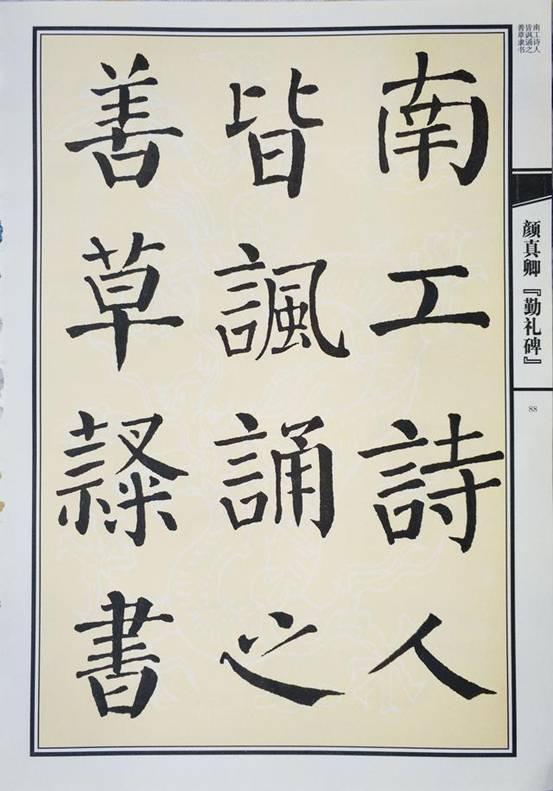 南工詩人
皆諷誦之
善草隸書
南工诗人
皆讽诵之
善草隶书
颜真卿『勤礼碑』
88